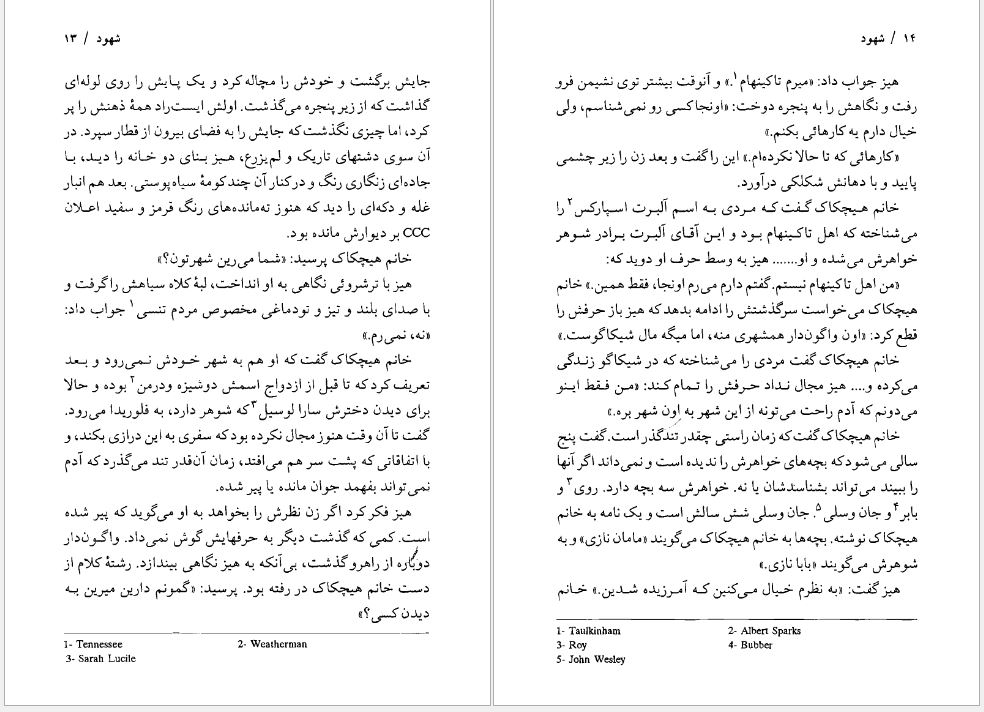 شهود / ۱۳
جایش برگشت و خودش را مچاله کرد و یک پایش را روی لوله‌ای
گذاشت که از زیر پنجره می‌گذشت. اولش ایست‌راد همهٔ ذهنش را پر
کرد، اما چیزی نگذشت که جایش را به فضای بیرون از قطار سپرد. در
آن سوی دشتهای تاریک و لم‌یزرع، هیز بنای دو خانه را دید، با
جاده‌ای زنگاری رنگ و در کنار آن چند کومهٔ سیاه‌پوستی. بعد هم انبار
غله و دکه‌ای را دید که هنوز ته‌مانده‌های رنگ قرمز و سفید اعلان
CCC بر دیوارش مانده بود.
خانم هیچکاک پرسید: «شما می‌رین شهرتون؟»
هیز با ترشروئی نگاهی به او انداخت، لبهٔ کلاه سیاهش را گرفت و
با صدای بلند و تیز و تودماغی مخصوص مردم تنسی۱ جواب داد:
«نه، نمی‌رم.»
خانم هیچکاک گفت که او هم به شهر خودش نمی‌رود و بعد
تعریف کرد که تا قبل از ازدواج اسمش دوشیزه ودرمن۲ بوده و حالا
برای دیدن دخترش سارا لوسیل۳ که شوهر دارد، به فلوریدا می‌رود.
گفت تا آن وقت هنوز مجال نکرده بود که سفری به این درازی بکند، و
با اتفاقاتی که پشت سر هم می‌افتد، زمان آن‌قدر تند می‌گذرد که آدم
نمی‌تواند بفهمد جوان مانده یا پیر شده.
هیز فکر کرد اگر زن نظرش را بخواهد به او می‌گوید که پیر شده
است. کمی که گذشت دیگر به حرفهایش گوش نمی‌داد. واگون‌دار
دوباره از راهرو گذشت، بی‌آنکه به هیز نگاهی بیندازد. رشتهٔ کلام از
دست خانم هیچکاک در رفته بود. پرسید: «گمونم دارین میرین به
دیدن کسی؟»
1- Tennessee 2- Weatherman
3- Sarah Lucile
۱۴ / شهود
هیز جواب داد: «میرم تاکینهام۱.» و آنوقت بیشتر توی نشیمن فرو
رفت و نگاهش را به پنجره دوخت: «اونجا کسی رو نمی‌شناسم، ولی
خیال دارم یه کارهائی بکنم.»
«کارهائی که تا حالا نکرده‌ام.» این را گفت و بعد زن را زیر چشمی
پایید و با دهانش شکلکی درآورد.
خانم هیچکاک گفت که مردی به اسم آلبرت اسپارکس۲ را
می‌شناخته که اهل تاکینهام بود و این آقای آلبرت برادر شوهر
خواهرش می‌شده و او....... هیز به وسط حرف او دوید که:
«من اهل تاکینهام نیستم. گفتم دارم می‌رم اونجا، فقط همین.» خانم
هیچکاک می‌خواست سرگذشتش را ادامه بدهد که هیز باز حرفش را
قطع کرد: «اون واگون‌دار همشهری منه، اما میگه مال شیکاگوست.»
خانم هیچکاک گفت مردی را می‌شناخته که در شیکاگو زندگی
می‌کرده و.... هیز مجال نداد حرفش را تمام کند: «من فقط اینو
می‌دونم که آدم راحت می‌تونه از این شهر به اون شهر بره.»
خانم هیچکاک گفت که زمان راستی چقدر تندگذر است. گفت پنج
سالی می‌شود که بچه‌های خواهرش را ندیده است و نمی‌داند اگر آنها
را ببیند می‌تواند بشناسدشان یا نه. خواهرش سه بچه دارد. روی۳ و
بابر۴ و جان وسلی۵. جان وسلی شش سالش است و یک نامه به خانم
هیچکاک نوشته. بچه‌ها به خانم هیچکاک می‌گویند «مامان نازی» و به
شوهرش می‌گویند «بابا نازی.»
هیز گفت: «به نظرم خیال می‌کنین که آمرزیده شدین.» خانم
1- Taulkinham 2- Albert Sparks
3- Roy 4- Bubber
5- John Wesley